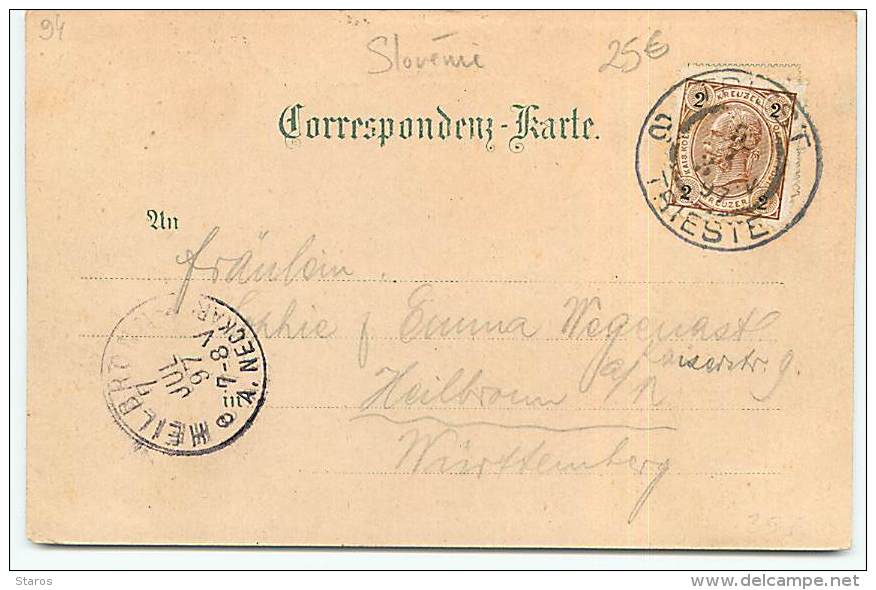 94
Slovénie
25€
Correspondenz-Karte.
2 KREUZER 2
2 KREUZER 2
TRIESTE
An
Fräulein
Sophie & Emma Wegenast
Kaiserstr. 9
Heilbronn a/N
Württemberg
HEILBRONN
A. NECKAR
7
JUL
97
7-8 V
Staros
delcampe.net